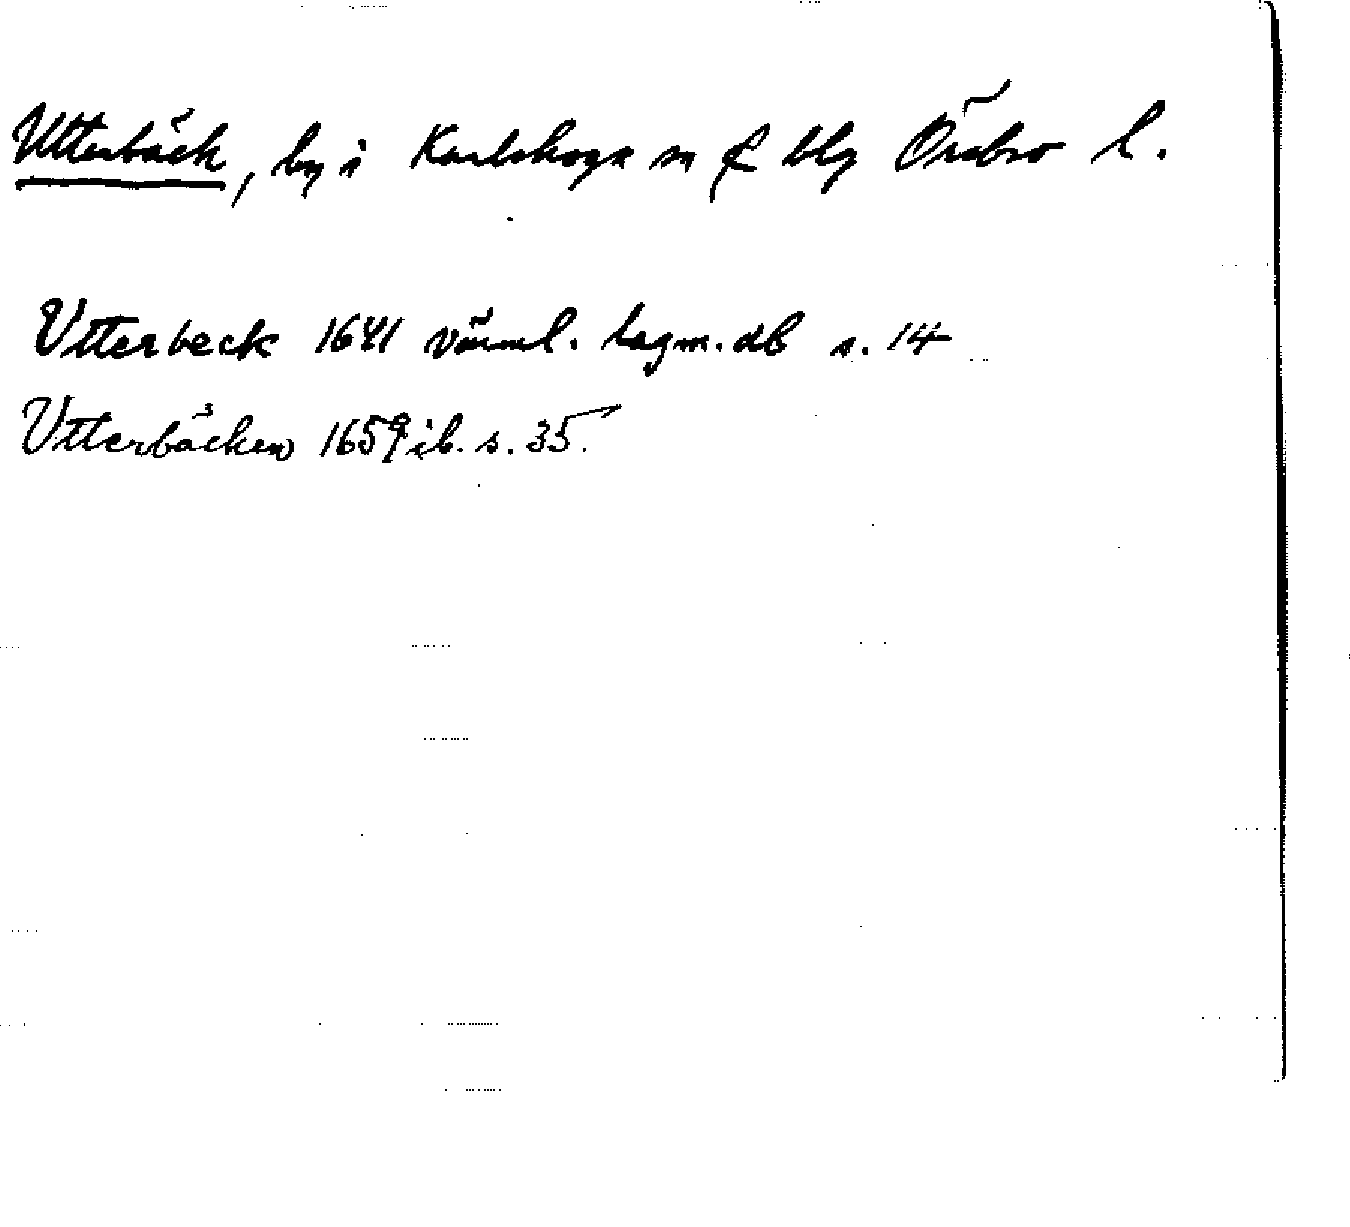 Utterbäck, by i Karlskoga sn o bg Örebro l.
Utterbeck 1641 värml. lagm. db s. 14
Utterbäcken 1659 ib. s. 35.